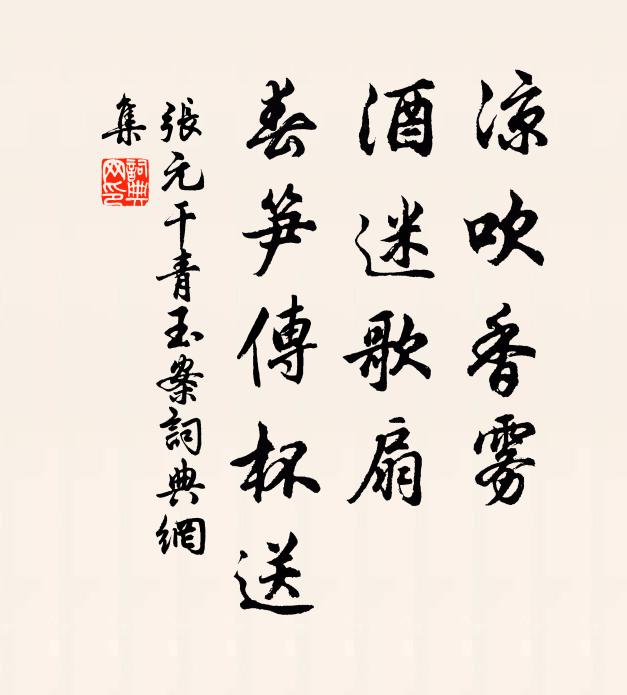 凉吹香雾
酒迷歌扇
春笋傳杯送
張元干青玉案詞典網
集
詞典
网印